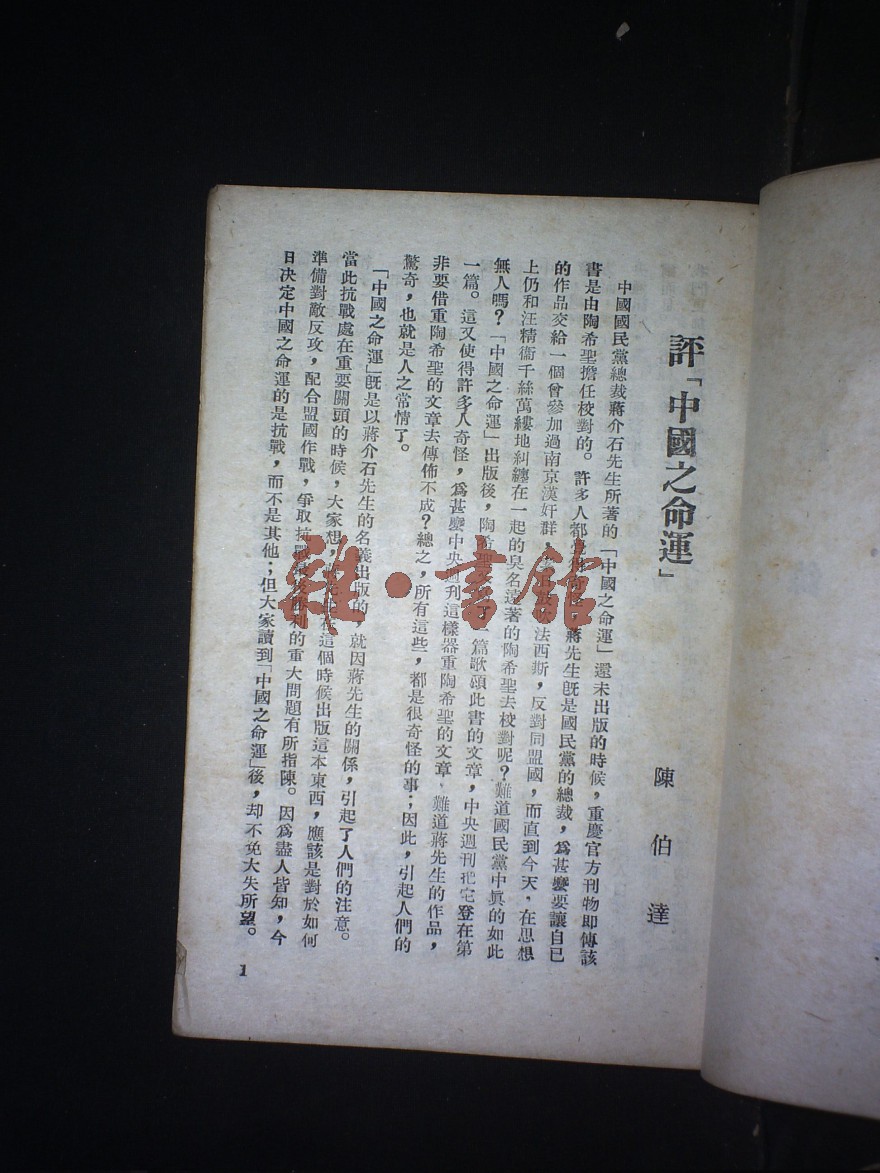 評「中國之命運」
陳伯達
中國國民黨總裁蔣介石先生所著的「中國之命運」還未出版的時候，重慶官方刊物即傳該
書是由陶希聖擔任校對的。許多人都 蔣先生旣是國民黨的總裁，爲甚麼要讓自己
的作品交給一個曾參加過南京漢奸群， 法西斯，反對同盟國，而直到今天，在思想
上仍和汪精衞千絲萬縷地糾纏在一起的臭名遠著的陶希聖去校對呢？難道國民黨中眞的如此
無人嗎？「中國之命運」出版後，陶希聖 了一篇歌頌此書的文章，中央週刊把它登在第
一篇。這又使得許多人奇怪，爲甚麼中央週刊這樣器重陶希聖的文章，難道蔣先生的作品，
非要借重陶希聖的文章去傳佈不成？總之，所有這些，都是很奇怪的事；因此，引起人們的
驚奇，也就是人之常情了。
「中國之命運」旣是以蔣介石先生的名義出版的，就因蔣先生的關係，引起了人們的注意。
當此抗戰處在重要關頭的時候，大家想， 在這個時候出版這本東西，應該是對於如何
準備對敵反攻，配合盟國作戰，爭取抗戰 勝利的重大問題有所指陳。因爲盡人皆知，今
日决定中國之命運的是抗戰，而不是其他；但大家讀到「中國之命運」後，却不免大失所望。
1
雜·書館